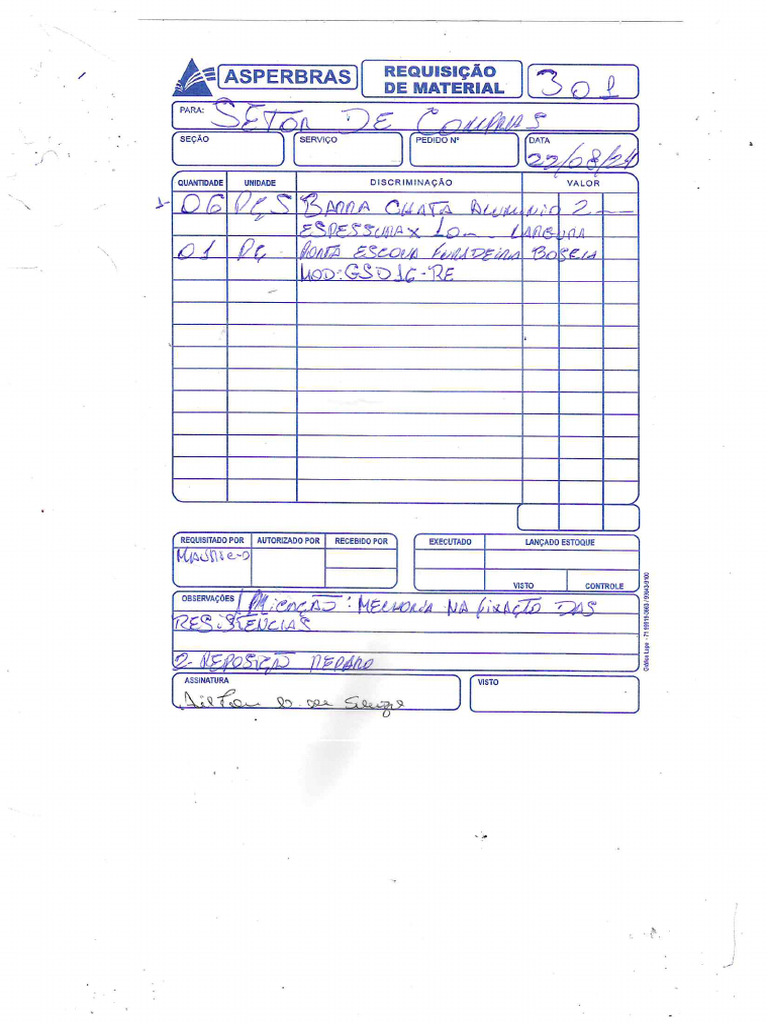 ASPERBRAS
REQUISIÇÃO DE MATERIAL
301
PARA: SETOR DE COMPRAS
SEÇÃO SERVIÇO PEDIDO Nº DATA
22/08/24
QUANTIDADE UNIDADE DISCRIMINAÇÃO VALOR
1- 06 PÇS BARRA CHATA ALUMINIO 2mm
ESPESSURA X 10mm LARGURA
01 PÇ PORTA ESCOVA FURADEIRA BOSCH
MOD: GSD16-RE
REQUISITADO POR AUTORIZADO POR RECEBIDO POR EXECUTADO LANÇADO ESTOQUE
MAURICIO
VISTO CONTROLE
OBSERVAÇÕES 1 APLICAÇÃO: MELHORIA NA FIXAÇÃO DAS
RESISTENCIAS
2- REPOSIÇÃO REPARO
ASSINATURA VISTO
Ailton